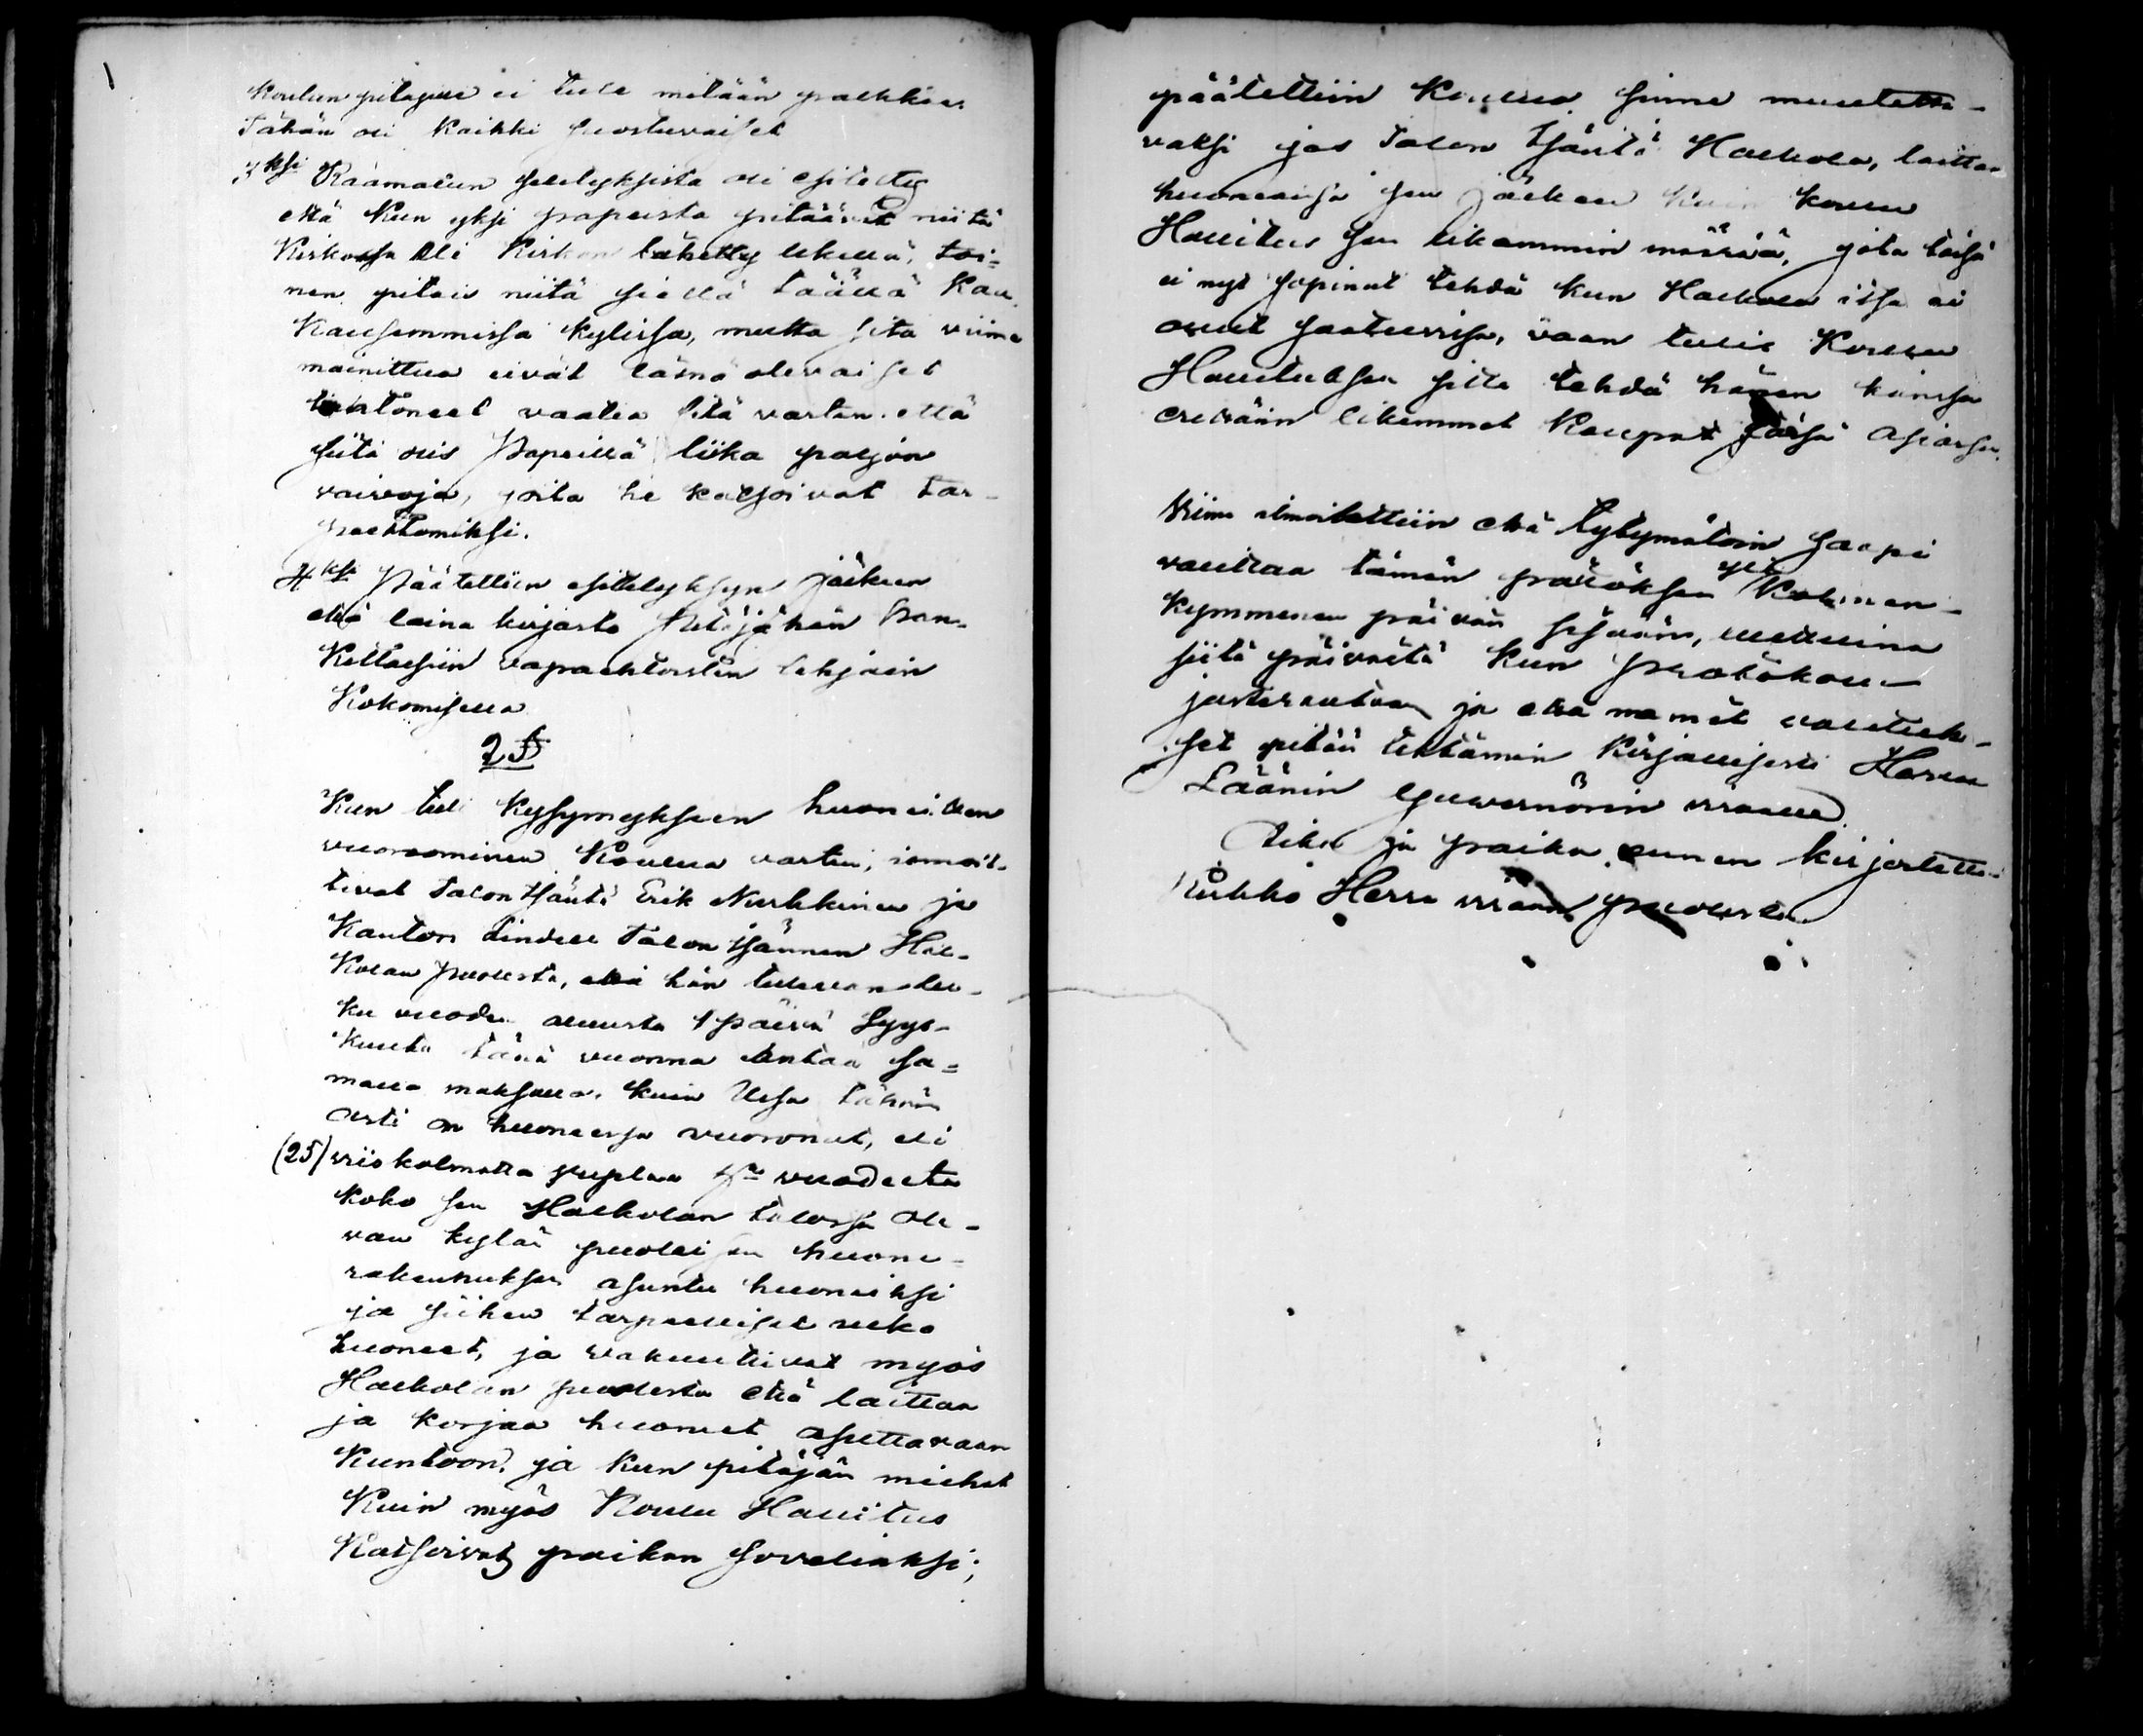 koulun pitajille ei tule mitään palkkaa
Tähän oli kaikki suostuvaiset
3ksi Raamatun selityksista oli esitetty
että kun yksi papeista pitäävät niitä
Kirkossa eli Kirkon lähetty lekellä, toi=
nen pitäis niitä siellä täällä Kau
Kausemmissa kylissa, mutta sita viime
mainittua eivät läsnä olevaiset
tahtoneet vaatia sitä varten että
siitä olis Papeillä liika paljon
vaivoja, joita he katsoivat tar-
peettomiksi.
4ksi Päätettiin esitelyksen jälkeen
että laina kirjasto pitäjähän han-
kittasiin vapaehtoisten lahjain
Kokomisella
2 §
Kun tuli kysymykseen huoneiden
vuoroominen Koulua varten, ilmoit-
tivat Talon Isäntä Erik Nurkkinen ja
Kantori Lindell Talon Isännen Hal-
kolan puolesta, että hän tulevan lu-
ku vuoden alusta 1 päivä Syys-
kuuta tänä vuonna antaa sa=
malla maksulla, kuin Ulla tähän
asti on huoneensa vuoronut, eli
(25) viiskolmatta ruplaa vuodeeta
koko sen Halkolan talossa ole-
van kylän puolisen huone-
rakennuksen asunto huoneiksi
ja siihen tarpeelliset ulko
huoneet, ja vakuutiivat myös
Halkolan puolesta että laittaa
ja korjaa huoneet asuttavaan
Kuntoon, ja kun pitäjän miehet
Kuin myös Koulu Hallitus
Katsoivat paikan soveliaksi;
päätettiin Koulua sinne muutetta-
vaksi jos Talon Isäntä Halkola, laittaa
huoneansa sen jälkeen kuin koulu
Hallitus sen likemmin määrää, jota täsä
ei nyt sopinut tehdä kun Halkola itse ei
ollut saatuvissa, vaan tulis Koulun
Hallituksen sitte tehdä hänen kanssa
erikään likemmät kaupat täsä asiassa.
Viime ilmoitettiin että tytymätöin saapi
valittaa tämän päätöksen yli Kolmen-
kymmenen päivän sisään, luettuina
siitä päivästä kun protokolla
justerautaan ja että mamit valituk-
set pitää tehtämän kirjallisesti Herra
Läänin Guvernörin virralle
Aika ja paikka ennen kirjoitettu
Kirkko Herra viran puolesta